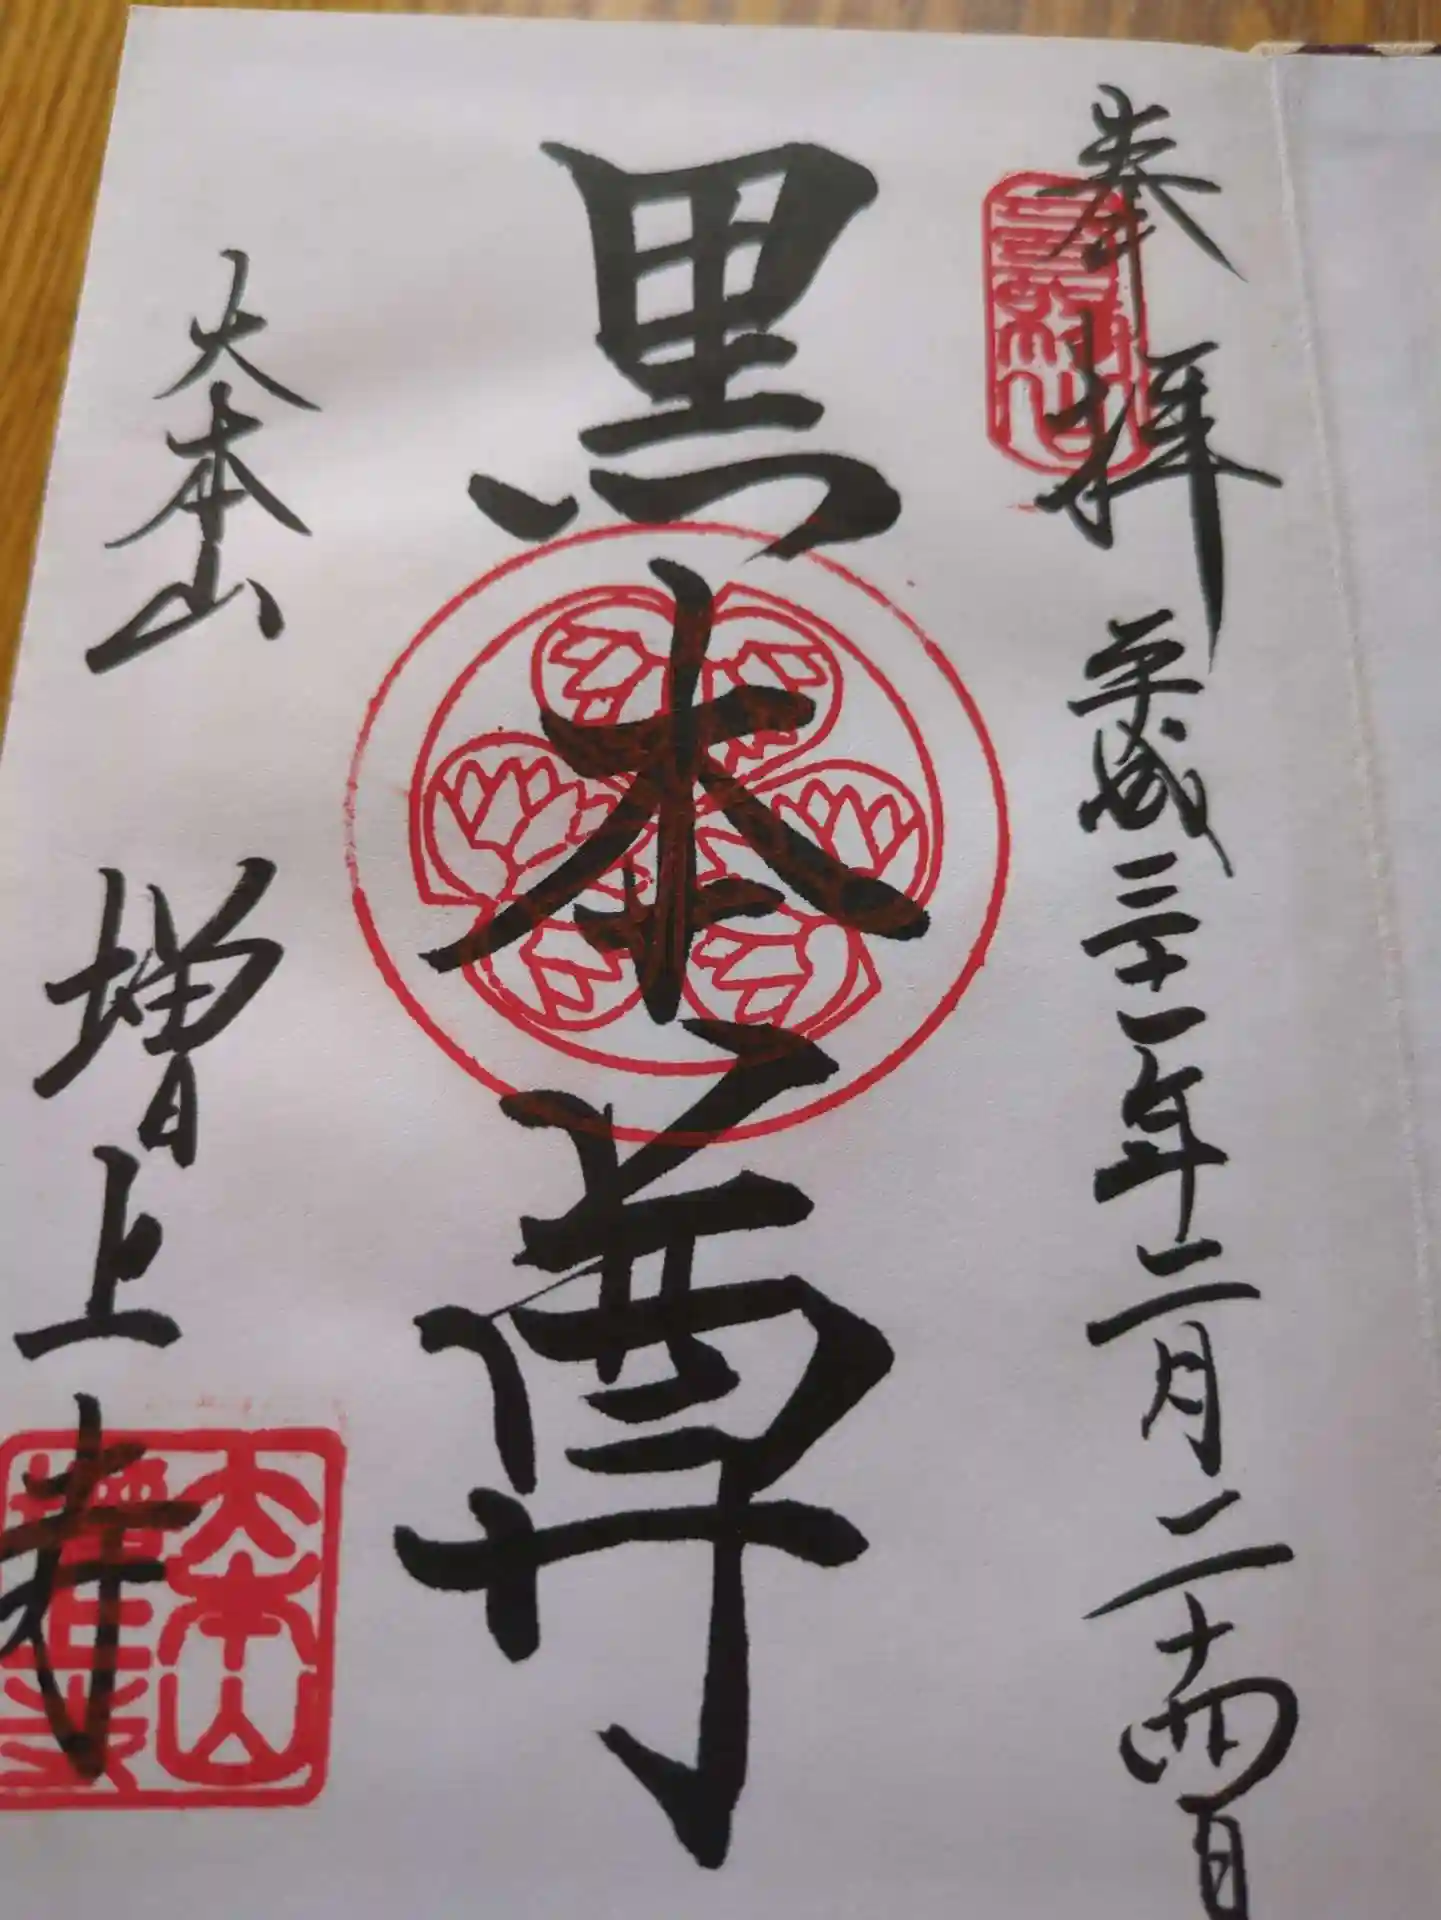 奉拝 平成三十一年二月二十四日
黒本尊
大本山 増上寺
大本山
増上寺